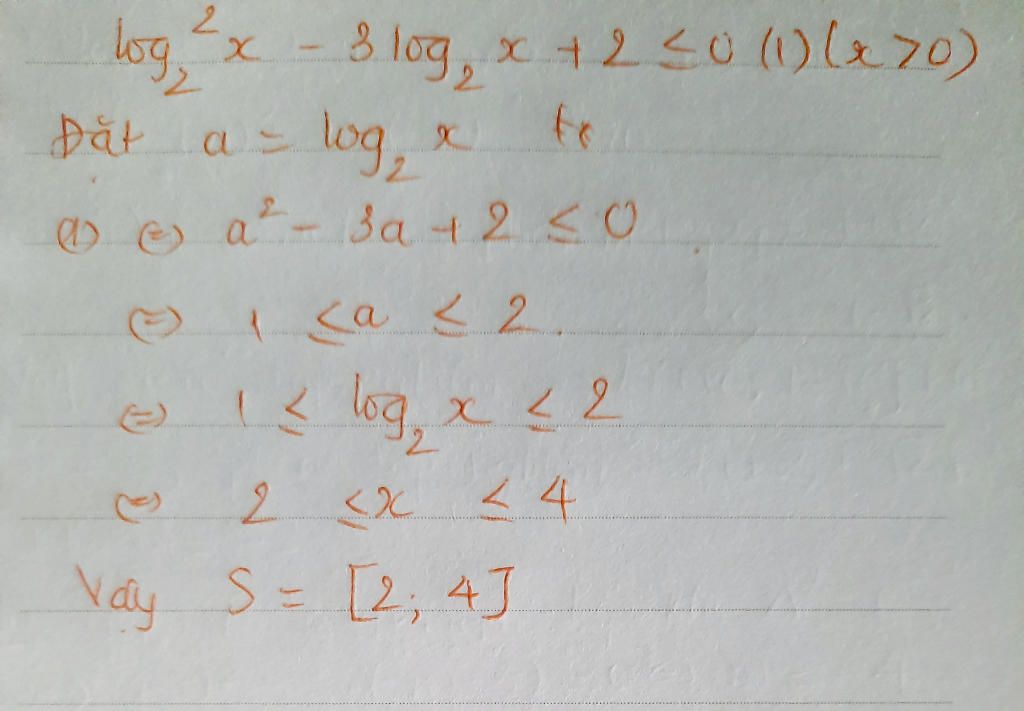 log₂²x - 3 log₂ x + 2 ≤ 0 (1) (x > 0)
Đặt a = log₂ x
(1) (=) a² - 3a + 2 ≤ 0
(=) 1 ≤ a ≤ 2.
(=) 1 ≤ log₂ x ≤ 2
(=) 2 ≤ x ≤ 4
Vậy S = [2; 4]